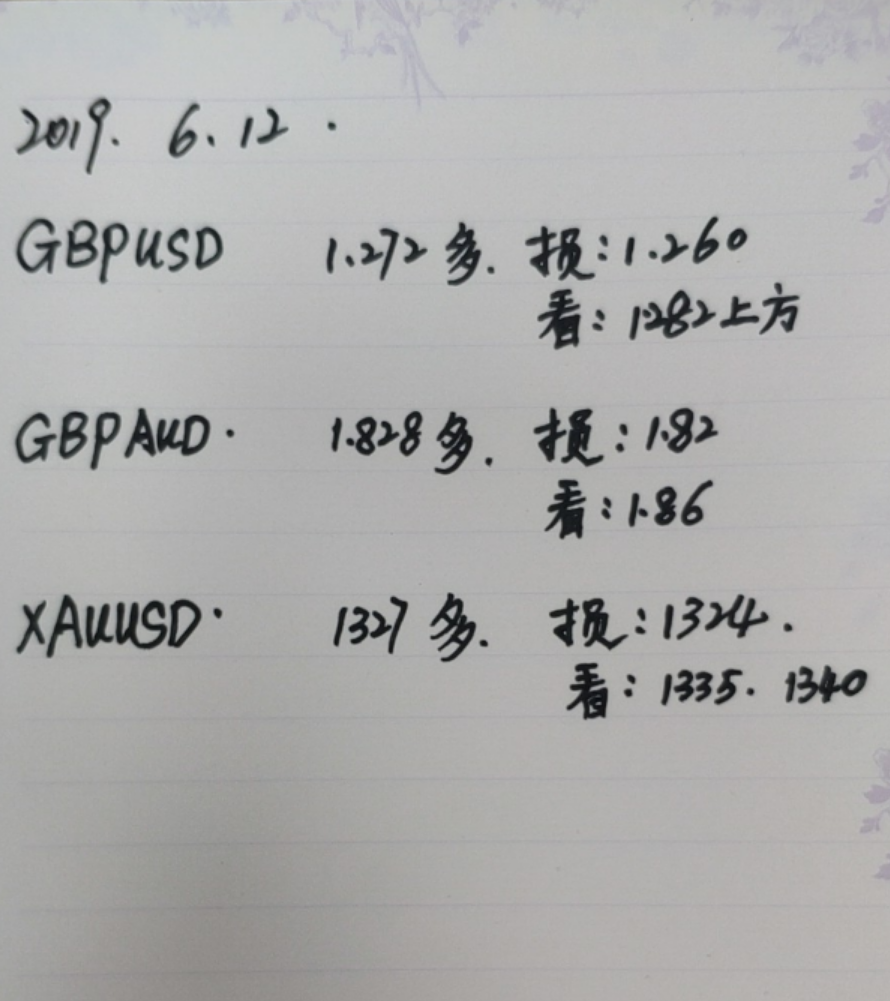 2019. 6.12.
GBPUSD 1.272多. 损:1.260
看:1.282上方
GBPAUD. 1.828多. 损:1.82
看:1.86
XAUUSD. 1327多. 损:1324.
看:1335. 1340